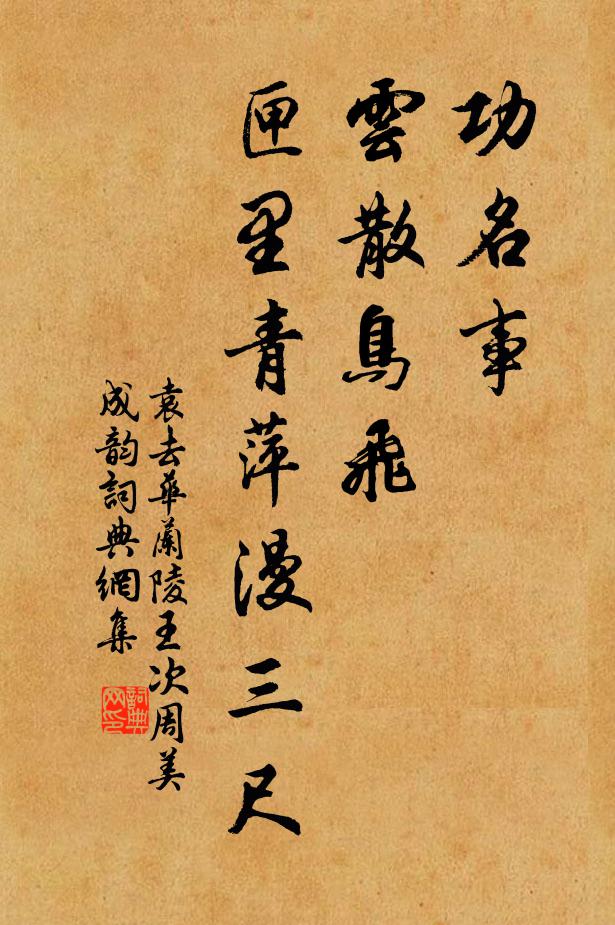 功名事
雲散鳥飛
匣里青萍漫三尺
袁去華蘭陵王次周美
成韵詞典網集
詞典
网印